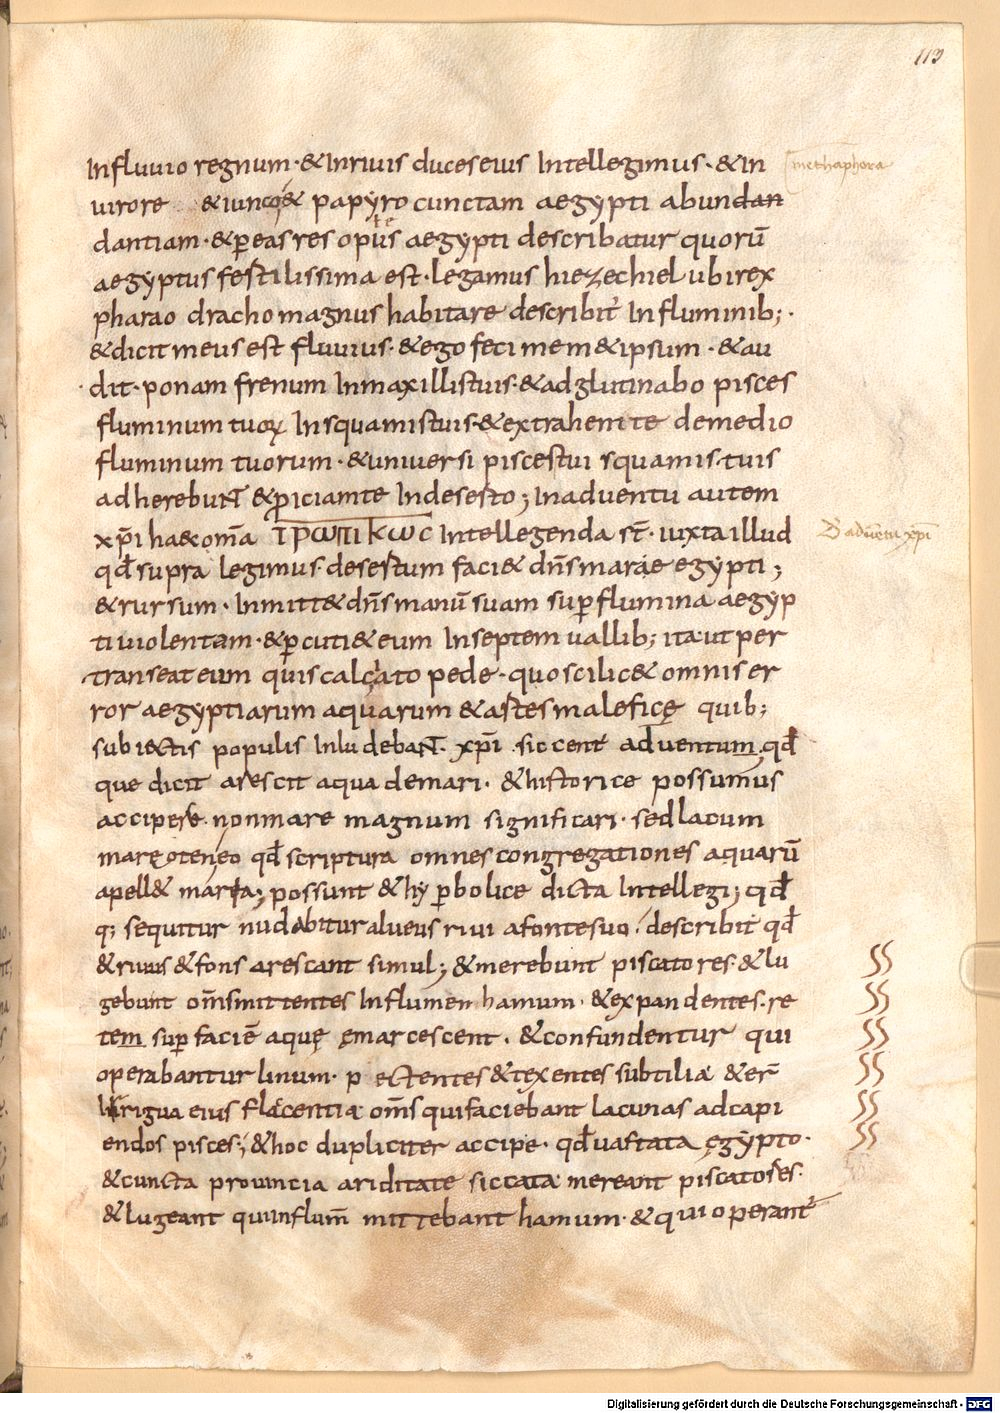 113
Influuio regnum · & Inriuis duces eius Intellegimus · & In
methaphora
uirore & iunco & papyro cunctam aegypti abundan
dantiam · & p eas res opus aegypti describatur quorū
aegyptus festilissima est · legamus hiezechiel ubi rex
pharao dracho magnus habitare describit Influminib;·
& dicit meus est fluuius · & ego feci mem&ipsum · & au
dit · ponam frenum Inmaxillis tuis · & adglutinabo pisces
fluminum tuoꝝ Insquamis tuis · & extraham te demedio
fluminum tuorum · & uniuersi pisces tui squamis tuis
adherebunt & piciam te Indeserto; Inaduentu autem
xp̄i haec om̄a ΤΡΩΠΙΚΩC Intellegenda st̄ · iuxta illud
D aduentu xp̄i
qd̄ supra legimus · desestum faci& dn̄s mare egypti;
& rursum · Inmitt& dn̄s manū suam sup flumina aegyp
ti uiolentam · & p cuti& eum Inseptem uallib; ita ut per
transeat eum quis calcato pede · quo scilic& omnis er
ror aegyptiarum aquarum & astes maleficę quib;
subiectis populis Inludebant · xp̄i siccent aduentum qd̄
que dicit arescit aqua demari · & historice possumus
accipere · non mare magnum significari · sed lacum
marę oteneo qd̄ scriptura omnes congregationes aquarū
apell& maria; possunt & hypbolice dicta Intellegi; qd̄
q; sequitur nudabitur alueus riui afonte suo · describit qd̄
& riuus & fons arescant simul; & merebunt piscatores · & lu
gebunt om̄s mittentes Influmen hamum · & expandentes · re
tem sup faciē aquę ęmarcescent · & confundentur qui
operabantur linum · p ectentes & texentes subtilia & er̄
Irrigua eius flacentia om̄s qui faciebant lacunas adcapi
endos pisces; & hoc dupliciter accipe · qd̄ uastata ęgypto ·
& cuncta prouincia ariditate siccata mereant piscatores ·
& lugeant qui influm̄ mittebant hamum · & qui operant
Digitalisierung gefördert durch die Deutsche Forschungsgemeinschaft - DFG